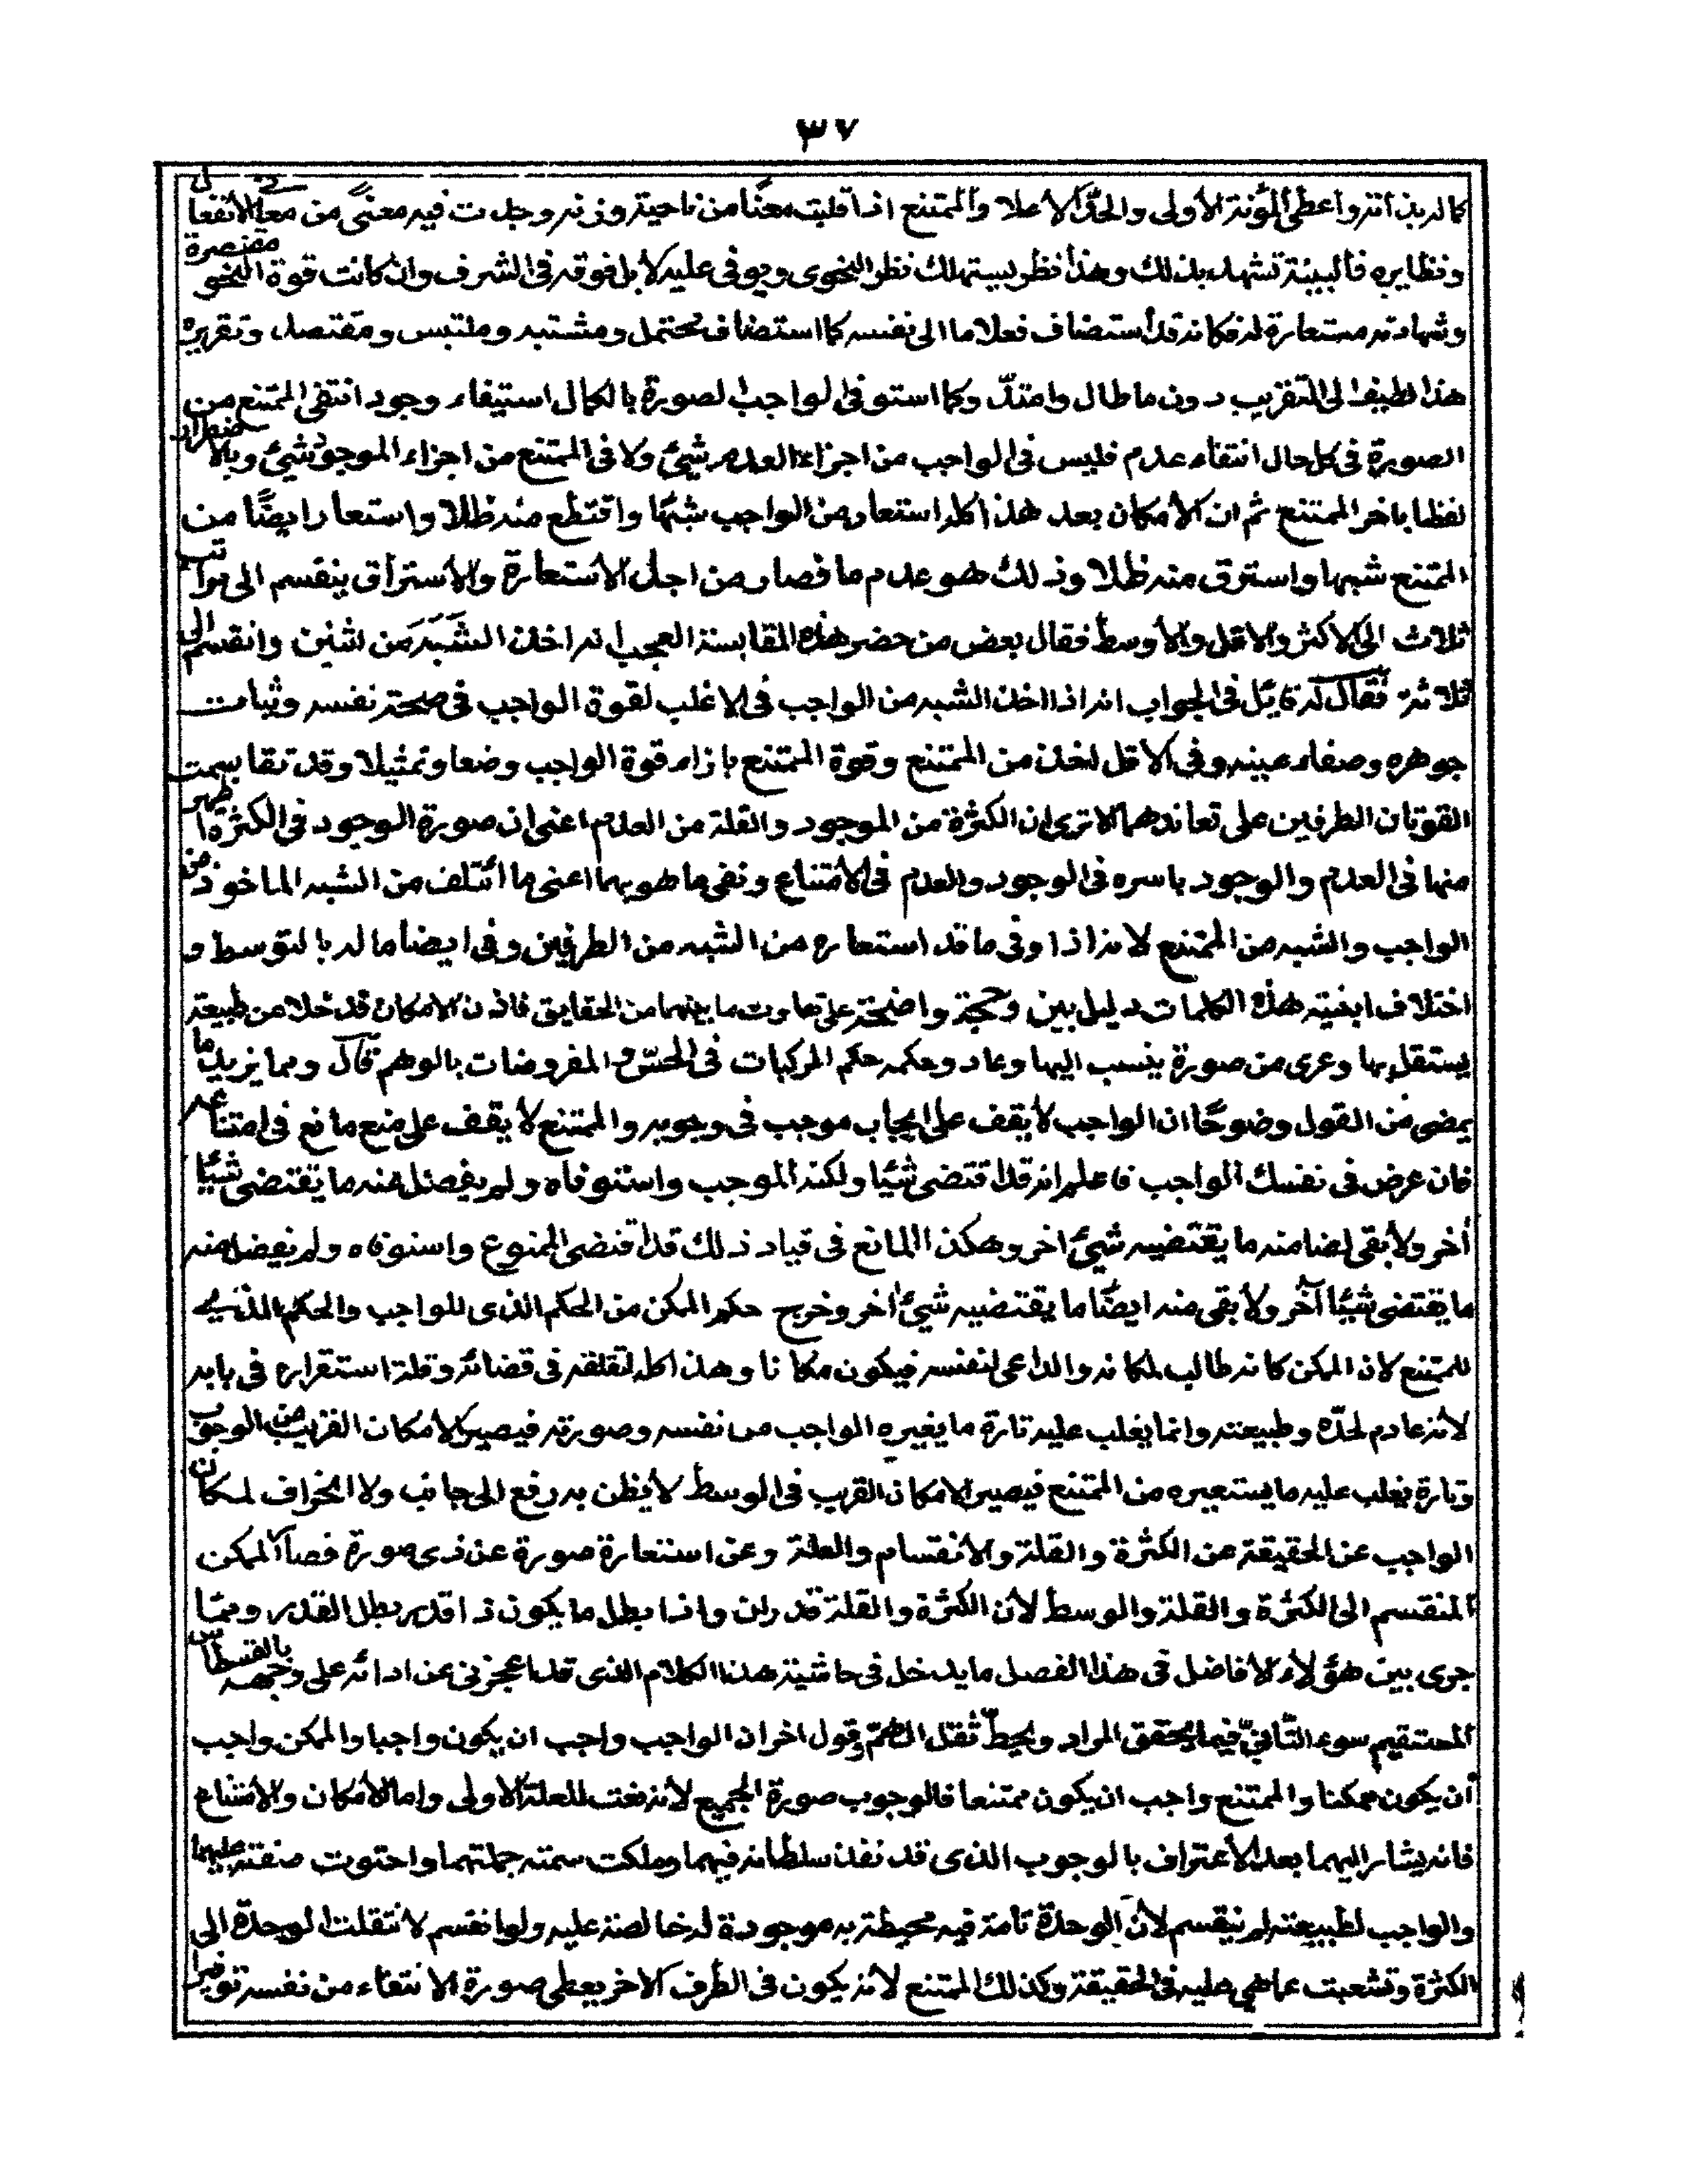 ٣٧
كما له بذاته واعطى المؤنة الأولى والحدّ الأعلا والممتنع اذا قلبت معنًا من ناحية وزنه وجدت فيه معنىً من معاني الأنفعال
ونظايره فألبينة تشهد بذلك وهذا نظر يستهلك نظر النحوى ويوفى عليه لا بل فوقه فى الشرف وان كانت قوة النحو مقتصرة
وشهادته مستعارة له فكانه قد أستضاف فعلا ما الى نفسه كما استضاف محتمل ومشتبه وملتبس ومقتصد وتقريره
هذا لطيف الى التقريب دون ما طال وامتدّ وكما استوفى الواجب الصورة بالكمال استيفاء وجود انتفى الممتنع من
الصورة فى كل حال انتفاء عدم فليس فى الواجب من اجزاء العدم شيئ ولا فى الممتنع من اجزاء الموجود شيئ وبالاضطرار
لفظا باخر الممتنع ثم ان الأمكان بعد هذا كله استعار من الواجب شبهًا واقتطع منه ظلا واستعار ايضًا من
الممتنع شبها واسترق منه ظلا وذلك هو عدم ما فصار من اجل الأستعارة والأستراق ينقسم الى مراتب
ثلاث الى الأكثر والاقل والأوسط فقال بعض من حضر هذه المقابسة العجب انه اخذ الشَّبَهَ من اثنين وانقسم الى
ثلاثة فقال له قائل فى الجواب انه اذا اخذ الشبه من الواجب فى الاغلب لقوة الواجب فى صحة نفسه وثبات
جوهره وصفاء عينه وفى الاقل اخذ من الممتنع وقوة الممتنع بازاء قوة الواجب وضعا وتمثيلا وقد تقاسمت
القوتان الطرفين على تعاندهما الا ترى ان الكثرة من الموجود والقلة من العدم اعنى ان صورة الوجود فى الكثرة اظهر
منها فى العدم والوجود باسره فى الوجود والعدم فى الأمتناع ونفى ما هو بهما اعنى ما ائتلف من الشبه الماخوذ من
الواجب والشبه من الممتنع لانه اذا وفى ما قد استعاره من الشبه من الطرفين وفى ايضا ما له بالتوسط و
اختلاف ابنية هذه الكلمات دليل بين وحجة واضحة على تفاوت ما بينهما من الحقايق فاذن الامكان قد خلا من طبيعة
يستقل بها وعرى من صورة ينسب اليها وعاد وحكمه حكم المركبات فى الحسّ والمفروضات بالوهم قال ومما يزيد ما
يمضى من القول وضوحًا ان الواجب لا يقف على ايجاب موجب فى وجوبه والممتنع لا يقف على منع مانع فى امتناعه
فان عرض فى نفسك الواجب فاعلم انه قد اقتضى شيًا ولكنه الموجب واستوفاه ولم يفضل منه ما يقتضى شيئا
أخر ولا بقى ايضا منه ما يقتضيه شيئ اخر وهكذا المانع فى قياد ذلك قد اقتضى الممنوع واستوفاه ولم يفضل منه
ما يقتضى شيئا آخر ولا بقى منه ايضًا ما يقتضيه شيئ أخر وخرج حكم الممكن من الحكم الذى للواجب والحكم الذى
للممتنع لان الممكن كانه طالب لمكانه والداعى لنفسه فيكون مكانا وهذا كله لتقلقه فى قضائه وقلة استقراره فى بابه
لأنه عادم لحدّه وطبيعته وانما يغلب عليه تارة ما يغيره الواجب من نفسه وصورته فيصير الأمكان القريب من الوجوب
وتارة يغلب عليه ما يستعيره من الممتنع فيصير الامكان القريب فى الوسط لا يظن به رفع الى جانب ولا انحراف لمكان
الواجب عن الحقيقة عن الكثرة والقلة والانقسام والعلة وعن استعارة صورة عن ذى صورة فصار الممكن
المنقسم الى الكثرة والقلة والوسط لأن الكثرة والقلة قدران واذا بطل ما يكون ذا قدر بطل القدر وممّا
جرى بين هؤلاء الأفاضل فى هذا الفصل ما يدخل فى حاشية هذا الكلام الذى قد اعجزنى عن ادائه على وجهه بالقسطاس
المستقيم سوء التأتّي فيما يحقق المراد ويحطّ ثقل الهمّ وقول اخر ان الواجب واجب ان يكون واجبا والممكن واجب
أن يكون ممكنا والممتنع واجب ان يكون ممتنعا فالوجوب صورة الجميع لأنه نعت للعلة الاولى واما الأمكان والأمتناع
فانه يشار اليهما بعد الأعتراف بالوجوب الذى قد نفذ سلطانه فيهما وملكت سمته جملتهما واحتوت صفته عليهما
والواجب لطبيعته لم ينقسم لأن الوحدة تامة فيه محيطة به موجودة له خالصة عليه ولو انقسم لانتقلت الوحدة الى
الكثرة وتشعبت عما هى عليه فى الحقيقة وكذلك الممتنع لانه يكون فى الطرف الاخر يعطى صورة الانتفاء من نفسه توفيرا